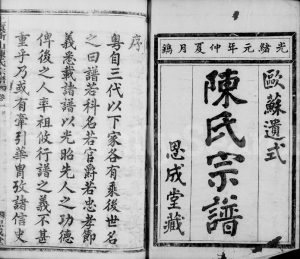 光緒元年仲夏月鐫
歐蘇遺式
陳氏宗譜
思成堂藏
序
粤自三代以下家各有乘後世名
之曰譜若科名若官爵若忠孝節
義悉載諸譜以光昭先人之功德
俾後之人率祖攸行譜之義不甚
重乎乃或有牽引華胄攷諸信史